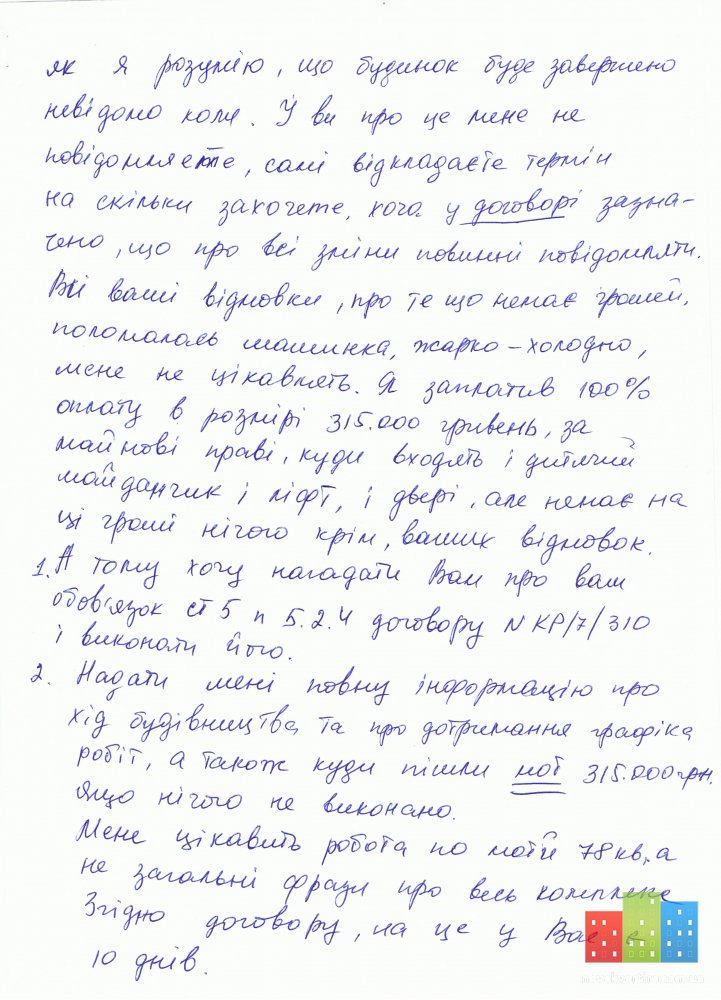 як я розумію, що будинок буде завершено
невідомо коли. І ви про це мене не
повідомляєте, самі відкладаєте термін
на скільки захочете, хоча у договорі зазна-
чено, що про всі зміни повинні повідомляти.
Всі ваші відмовки, про те що немає грошей,
поломалась машинка, жарко – холодно,
мене не цікавлять. Я заплатив 100%
оплату в розмірі 315.000 гривень, за
майнові праві, куди входять і дитячий
майданчик і ліфт, і двері, але немає на
ці гроші нічого крім, ваших відмовок.
1. А тому хочу нагадати Вам про ваш
обов'язок ст 5 п 5.2.4 договору N KP/7/310
і виконати його.
2. Надати мені повну інформацію про
хід будівництва та про дотримання графіка
робіт, а також куди пішли мої 315.000 грн.
якщо нічого не виконано.
Мене цікавить робота по моїй 78 кв, а
не загальні фрази про весь комплекс
Згідно договору, на це у Вас є
10 днів.